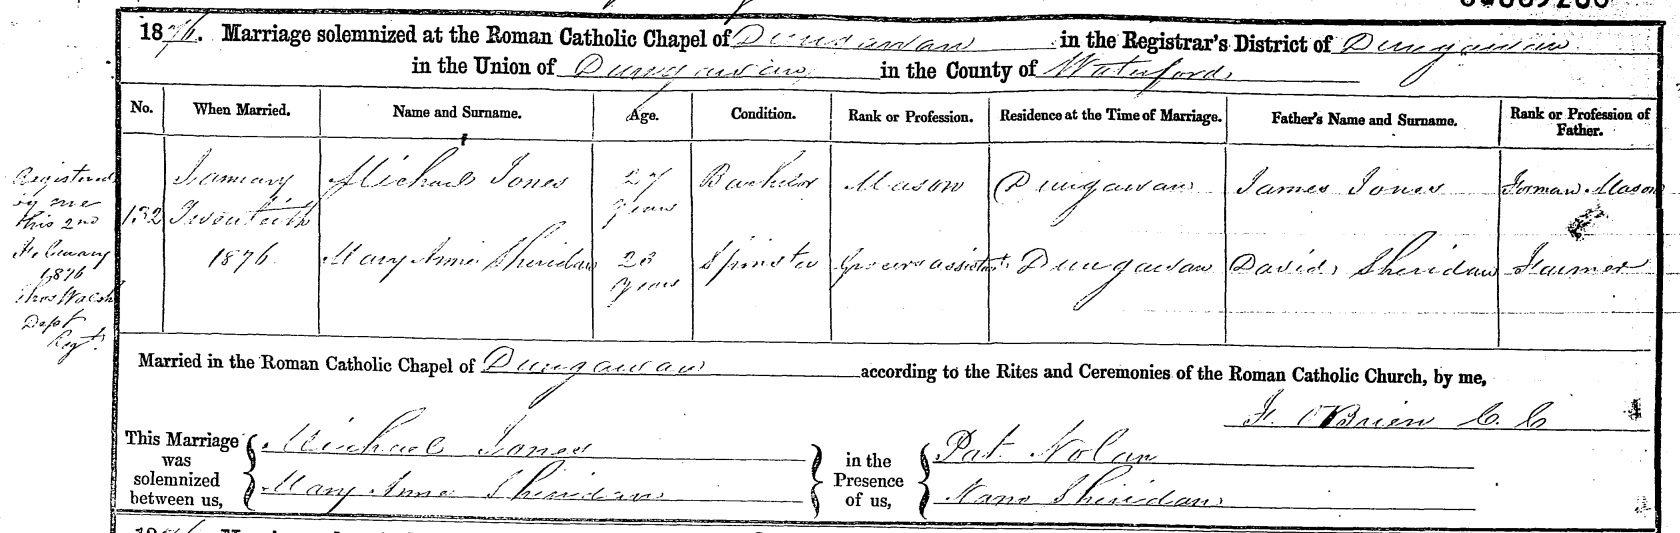 1876. Marriage solemnized at the Roman Catholic Chapel of Dungarvan in the Registrar's District of Dungarvan
in the Union of Dungarvan in the County of Waterford
No. When Married. Name and Surname. Age. Condition. Rank or Profession. Residence at the Time of Marriage. Father's Name and Surname. Rank or Profession of Father.
132 January Twentieth 1876 Michael Jones 27 years Bachelor Mason Dungarvan James Jones Forman Mason
Mary Anne Sheridan 23 years Spinster Grocers assistant Dungarvan David Sheridan Farmer
Registered
by me
this 2nd
February
1876
Thos Walsh
Dept
Regt.
Married in the Roman Catholic Chapel of Dungarvan according to the Rites and Ceremonies of the Roman Catholic Church, by me,
F. O'Brien C. C
This Marriage was solemnized between us,
Michael Jones
Mary Anne Sheridan
in the Presence of us,
Pat Nolan
Nano Sheridan